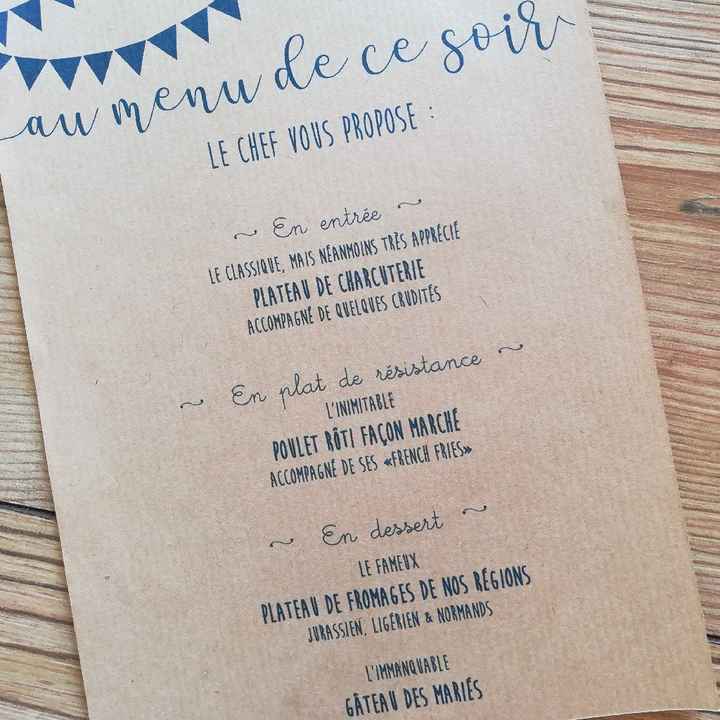 au menu de ce soir
LE CHEF VOUS PROPOSE :
~ En entrée ~
LE CLASSIQUE, MAIS NÉANMOINS TRÈS APPRÉCIÉ
PLATEAU DE CHARCUTERIE
ACCOMPAGNÉ DE QUELQUES CRUDITÉS
~ En plat de résistance ~
L'INIMITABLE
POULET RÔTI FAÇON MARCHÉ
ACCOMPAGNÉ DE SES «FRENCH FRIES»
~ En dessert ~
LE FAMEUX
PLATEAU DE FROMAGES DE NOS RÉGIONS
JURASSIEN, LIGÉRIEN & NORMANDS
L'IMMANQUABLE
GÂTEAU DES MARIÉS